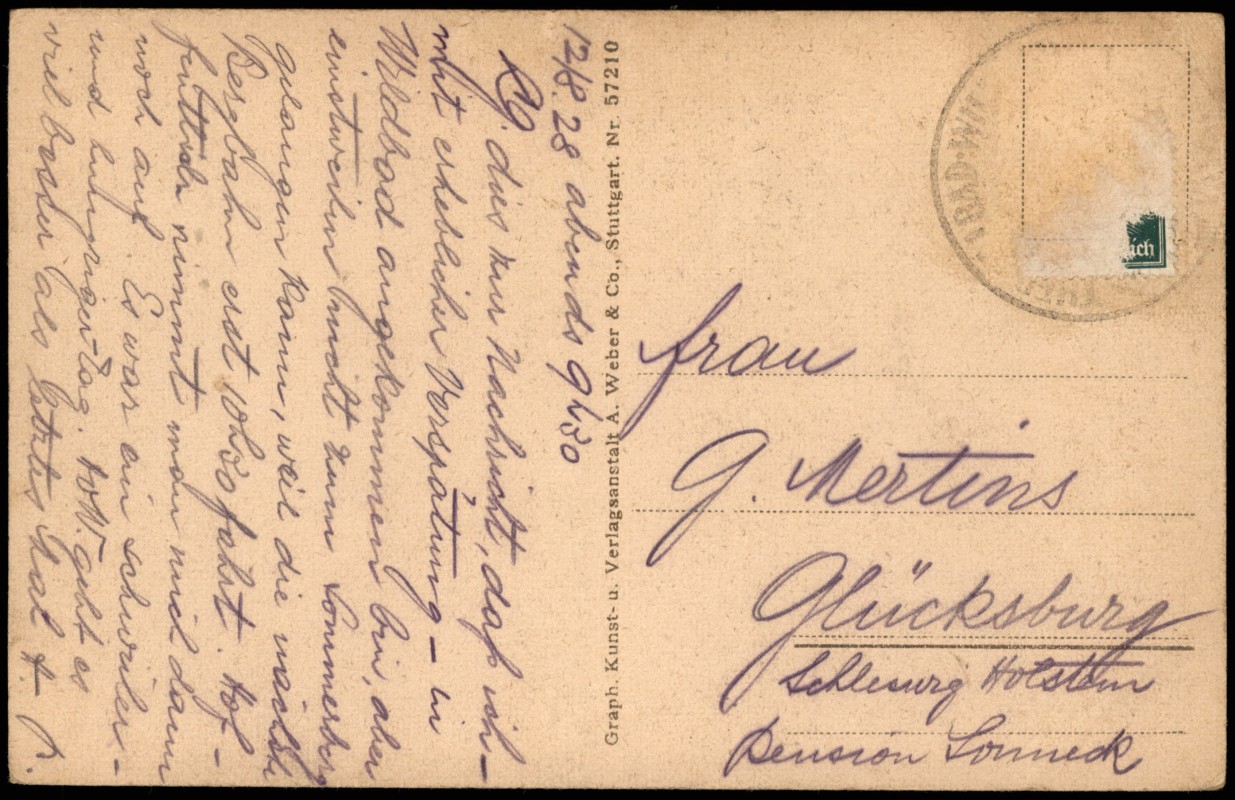 12/8.28 abends 9h30
Kg. dies nur Nachricht, daß ich –
mit erheblicher Verspätung – in
Wildbad angekommen bin, aber
einstweilen nicht zum Sommerberg
gelangen kann, weil die nächste
Bergbahn erst 10h30 fährt. Hof-
fentlich nimmt man mich dann
noch auf. Es war ein schwieler-
und hungriger Tag. geht es
viel besser als letztes Mal
Graph. Kunst- u. Verlagsanstalt A. Weber & Co., Stuttgart. Nr. 57210
BAD·WI
ich
Frau
G. Mertins
Glücksburg
Schleswig Holstein
Pension Sonneck